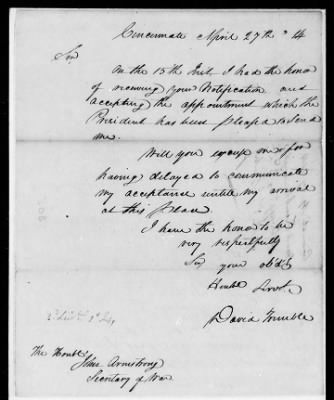 Cincinnati April 27th 14
Sir
On the 15th Inst. I had the honor
of receiving your Notification and
accepting the appointment which the
President has been pleased to send
me.
Will you excuse me for
having delayed to communicate
my acceptance untill my arrival
at this place
I have the honor to be
very respectfully
Sir your obdt
Humbl Servt.
David Trimble
The Honble
John Armstrong
Secretary of War